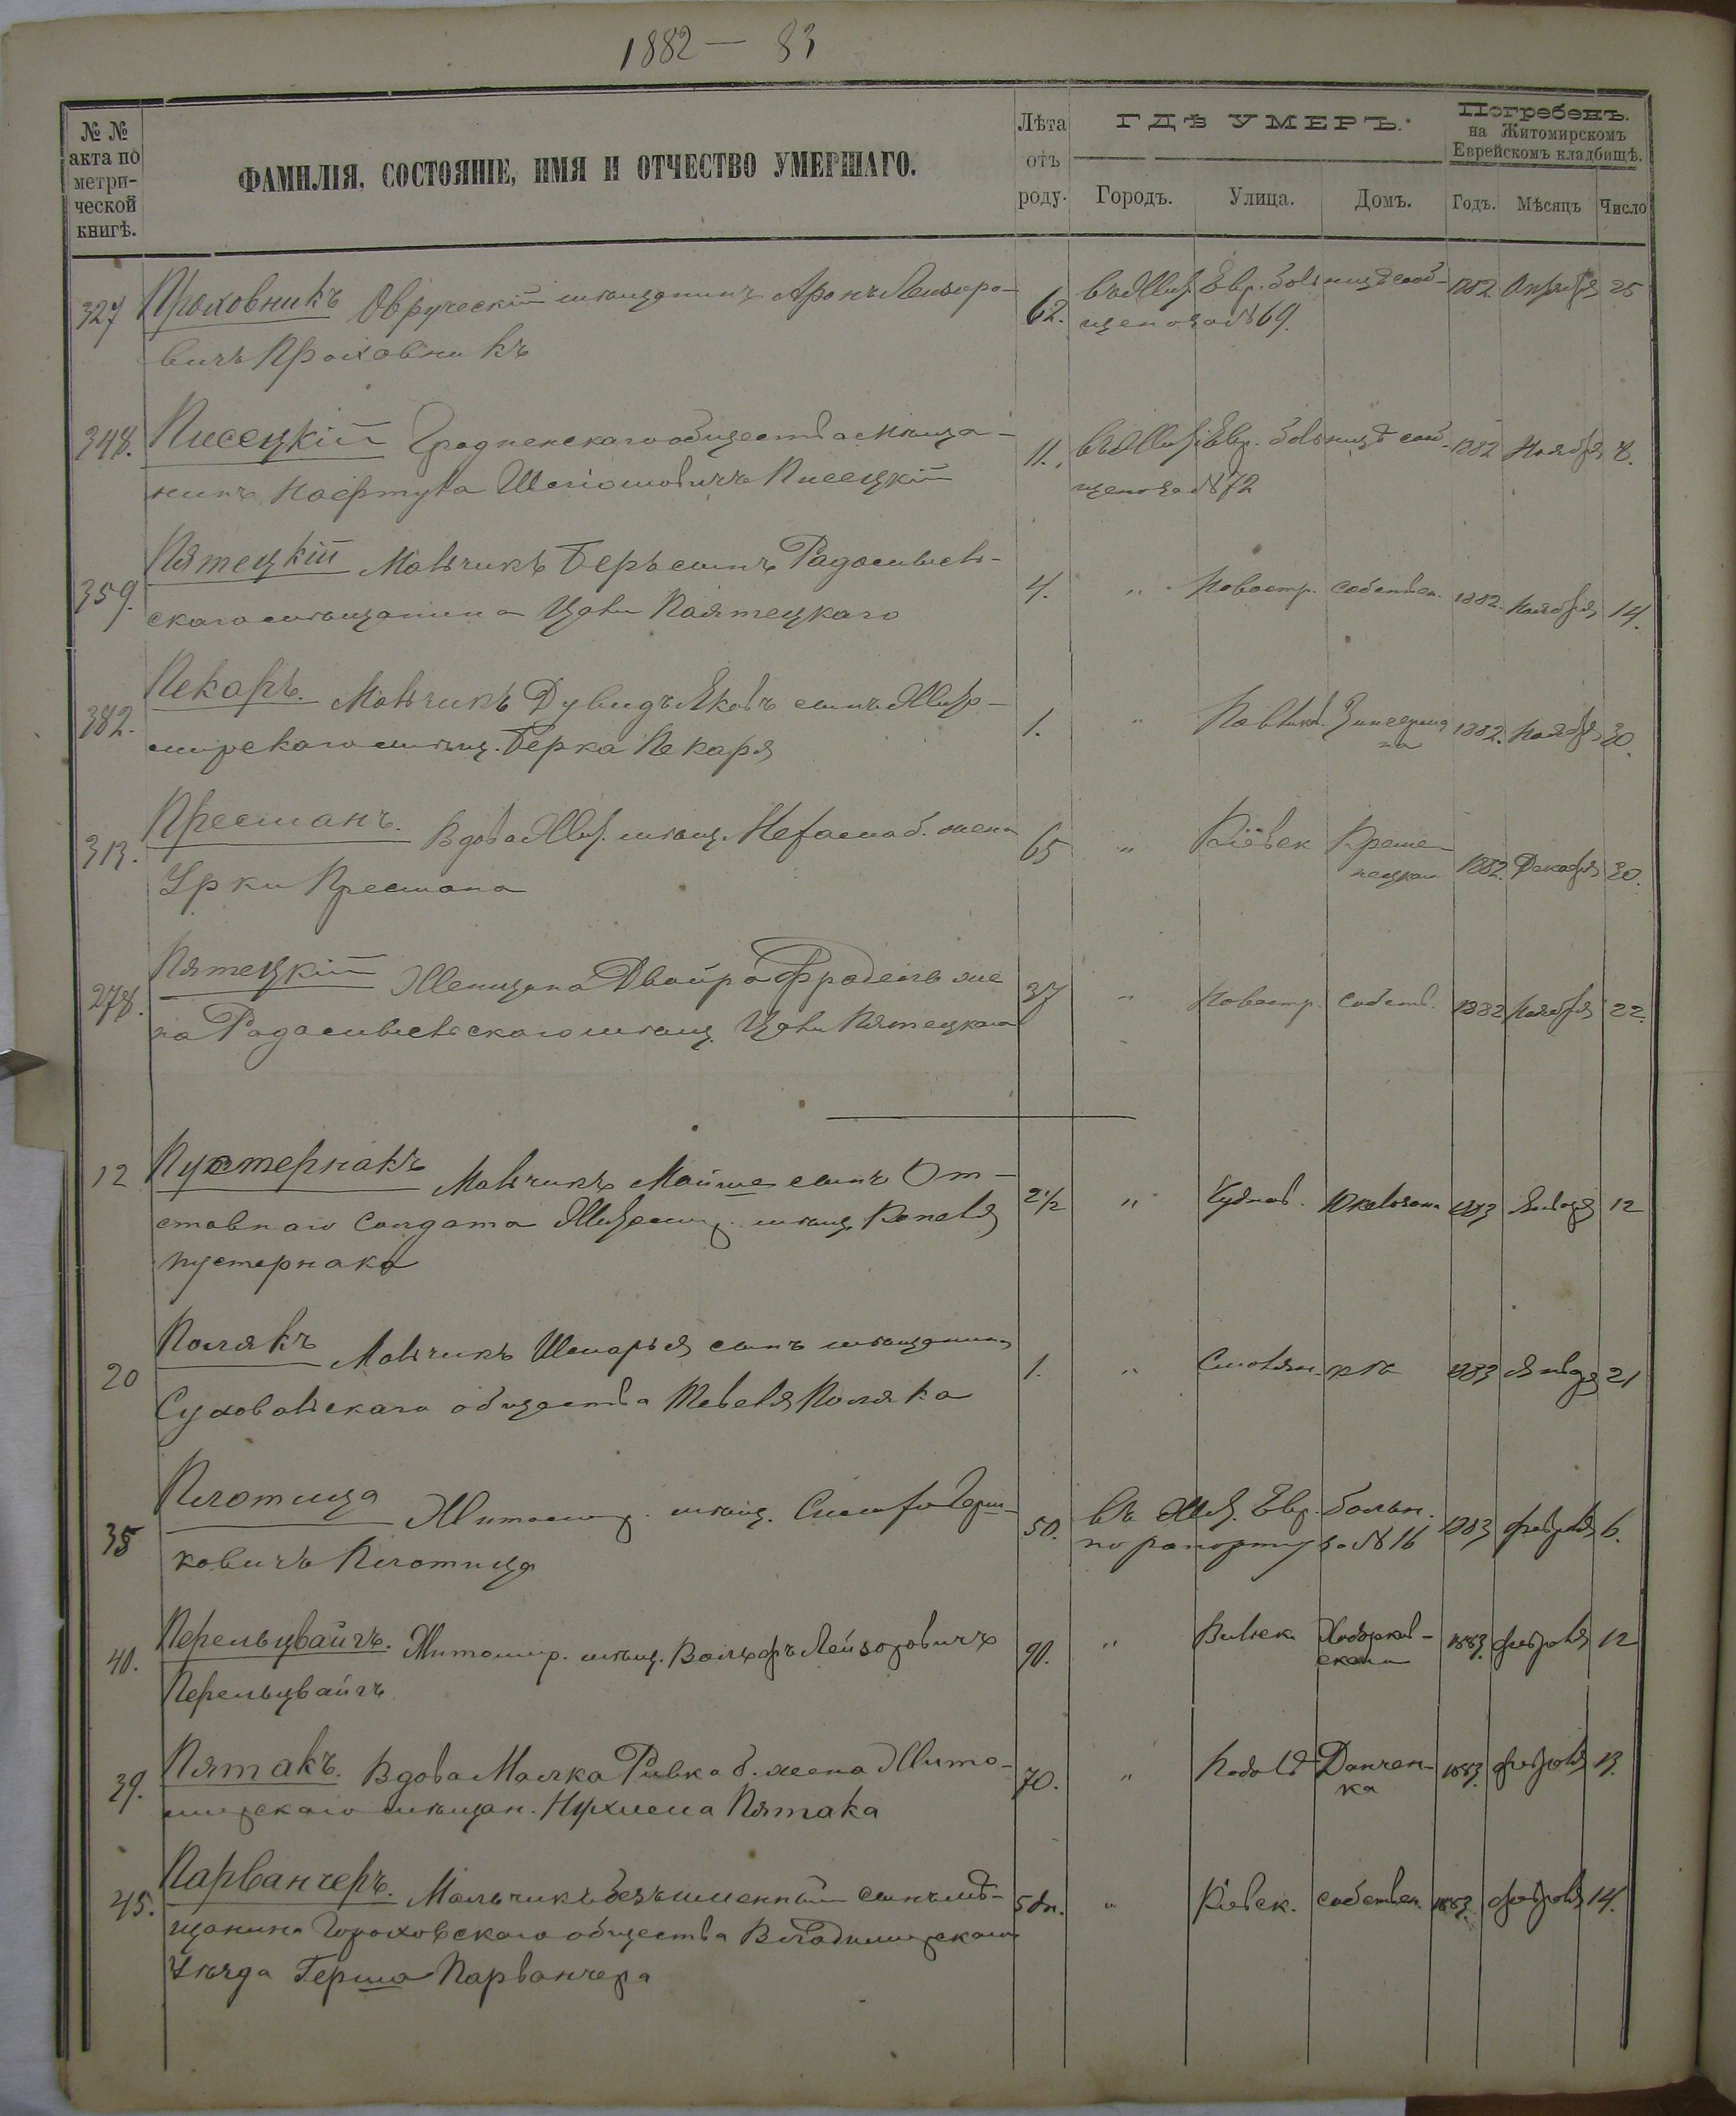 1882 — 83
№ № акта по метрической книгѣ.
ФАМИЛІЯ, СОСТОЯНІЕ, ИМЯ И ОТЧЕСТВО УМЕРШАГО.
Лѣта отъ роду.
ГДѢ УМЕРЪ.
Городъ. Улица. Домъ.
Погребенъ.
на Житомирскомъ
Еврейскомъ кладбищѣ.
Годъ. Мѣсяцъ Число
327 Проховникъ Овруческій мѣщанинъ Аронъ Лейзоро- 62. въ Жит. Евр. больницѣ сооб- 1882 25
вичъ Проховникъ щено за №69.
348. Писецкій Гродненскаго общества мѣща- 11. въ Жит. Евр. больницѣ сооб- 1882 Ноября 8.
нинъ Шліомовичъ Писецкій щено за №72
359. Пятецкій Мальчикъ Беръ сынъ Радомысль- 4. " Новостр. собствен. 1882. Ноября 14.
скаго мѣщанина Пятецкаго
382. Пекаръ. Мальчикъ Дувидъ Яковъ сынъ Жито- 1. " 1882. Ноября 30.
мирскаго мѣщ. Берка Пекаря
313. Пресманъ. Вдова Жит. мѣщ. б. жена 65 " Кіевск Креме- 1882. Декабря 30.
Урки Пресмана нецкаи
278. Пятецкій Женщина Двойра Фрадель же 37 " Новостр. собств. 1882 Ноября 22.
на Радомысльскаго мѣщ. Пятецкаго
12 Пустернакъ Мальчикъ Мойше сынъ От- 2½ " Чуднов. 1883 Января 12
ставнаго солдата Житомир. мѣщ. Копеля
пустернака
20 Полякъ Мальчикъ Шмарья сынъ мѣщанина 1. " 1883 Января 21
общества Тевеля Поляка
35 Плотица Житомир. мѣщ. 50. въ Жит. Евр. больн. 1883 февраля 6.
ковичъ Плотица по рапорту за №16
40. Перельцвайгъ. Житомир. мѣщ. Вольфъ Лейзоровичъ 90. " Вильск. Ходорков- 1883 февраля 12
Перельцвайгъ скаи
39. Пятакъ. Вдова Малка Ривка б. жена Жито- 70. " Данчен- 1883 февраля 13.
мирскаго мѣщан. Нухима Пятака ка
45. Парванчеръ. Мальчикъ безъименный сынъ мѣ- 5 дн. " Кіевск. собствен. 1883 февраля 14.
щанина Гороховскаго общества Владимирскаго
Уѣзда Герша Парванчера